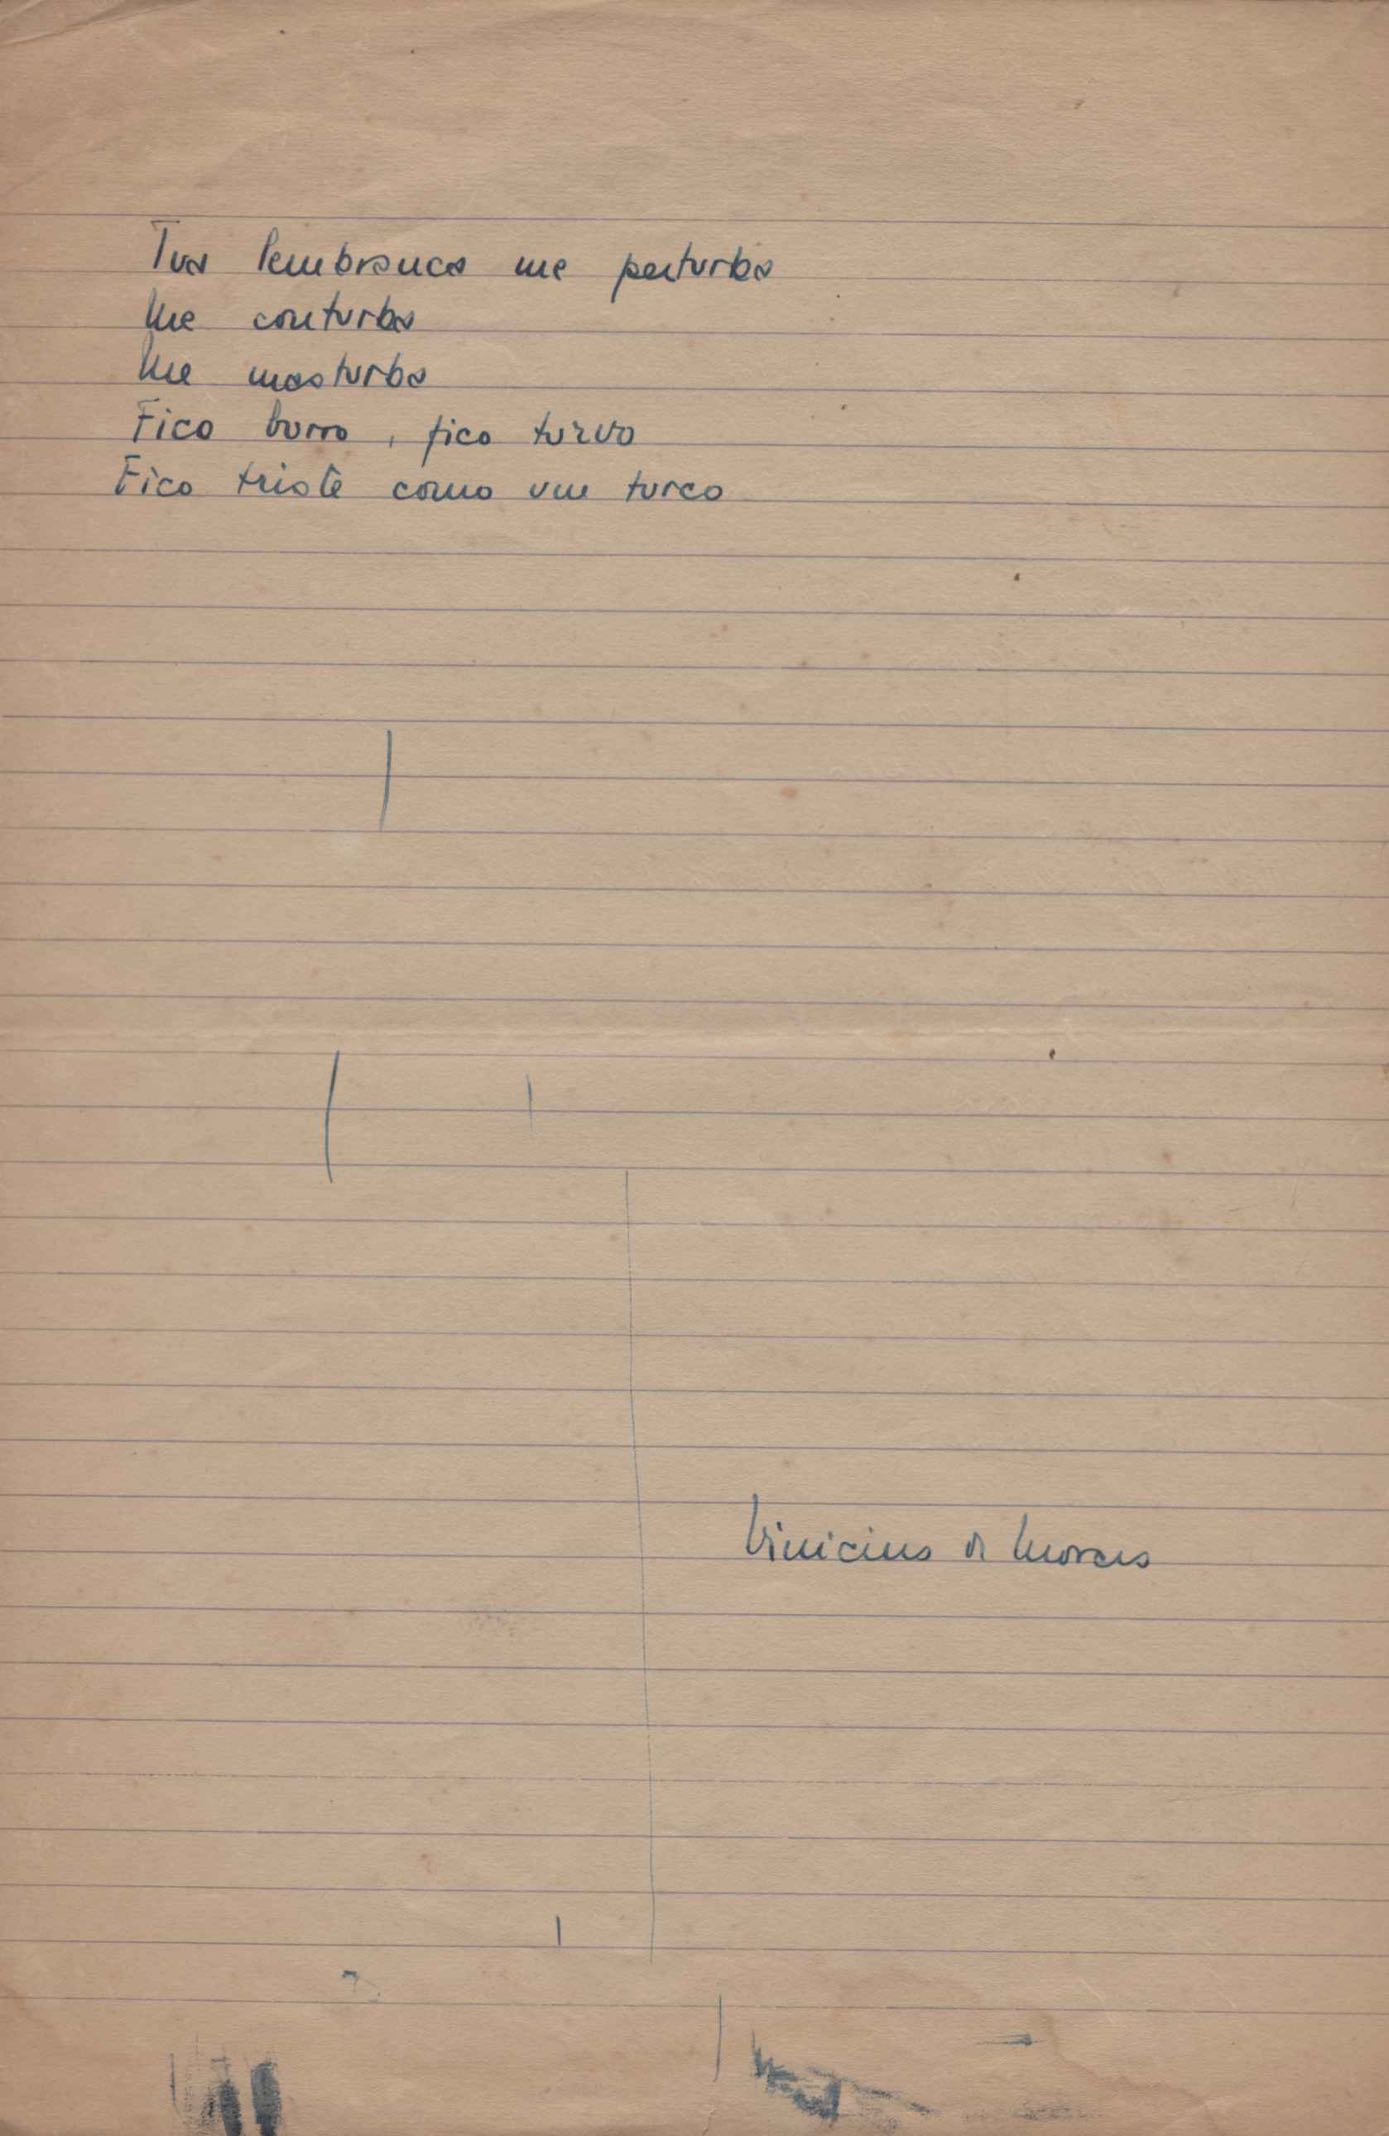 Tua lembranca me perturba
Me conturba
Me masturba
Fico burro, fico turvo
Fico triste como um turco
Vinicius de Moraes